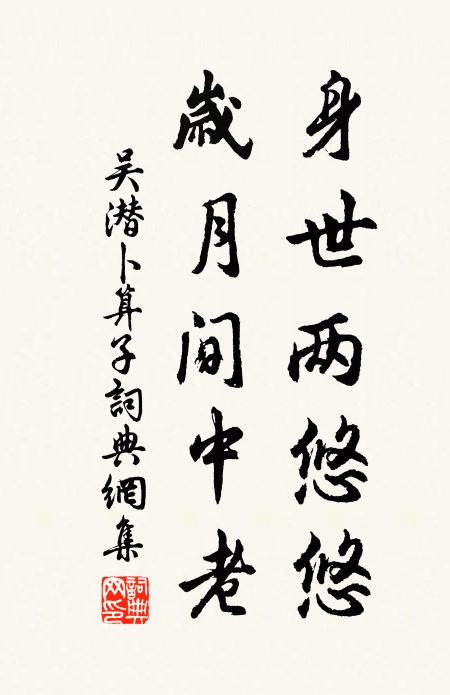 身世两悠悠
歳月间中老
吴潜卜算子詞典網集
詞典网印